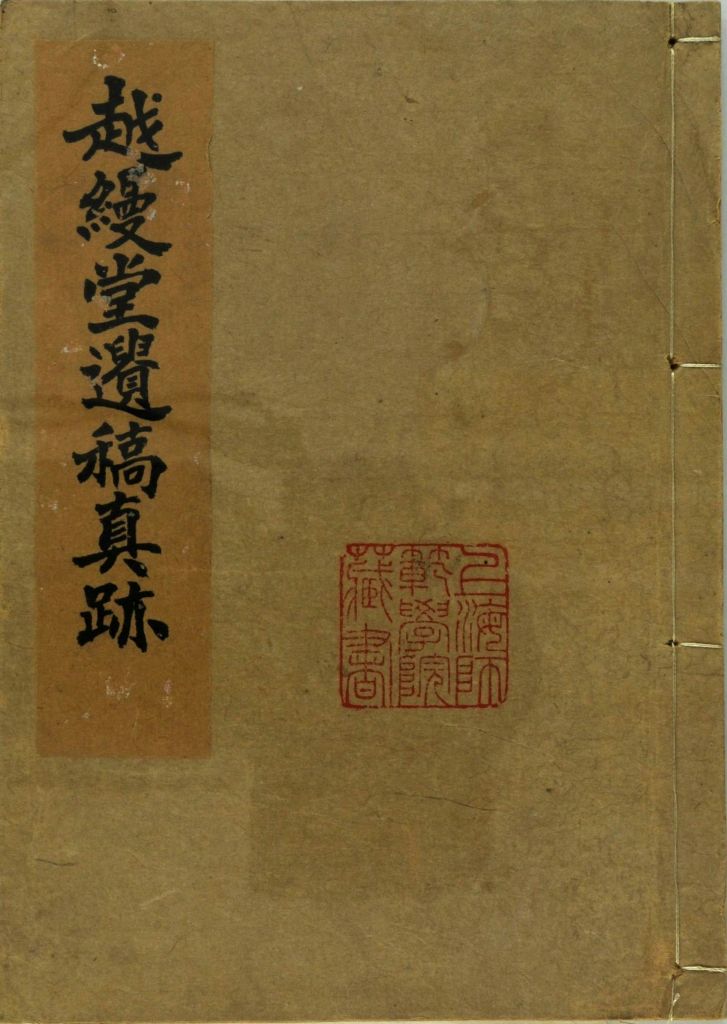 越縵堂遺稿真跡
上海師
範學院
藏書